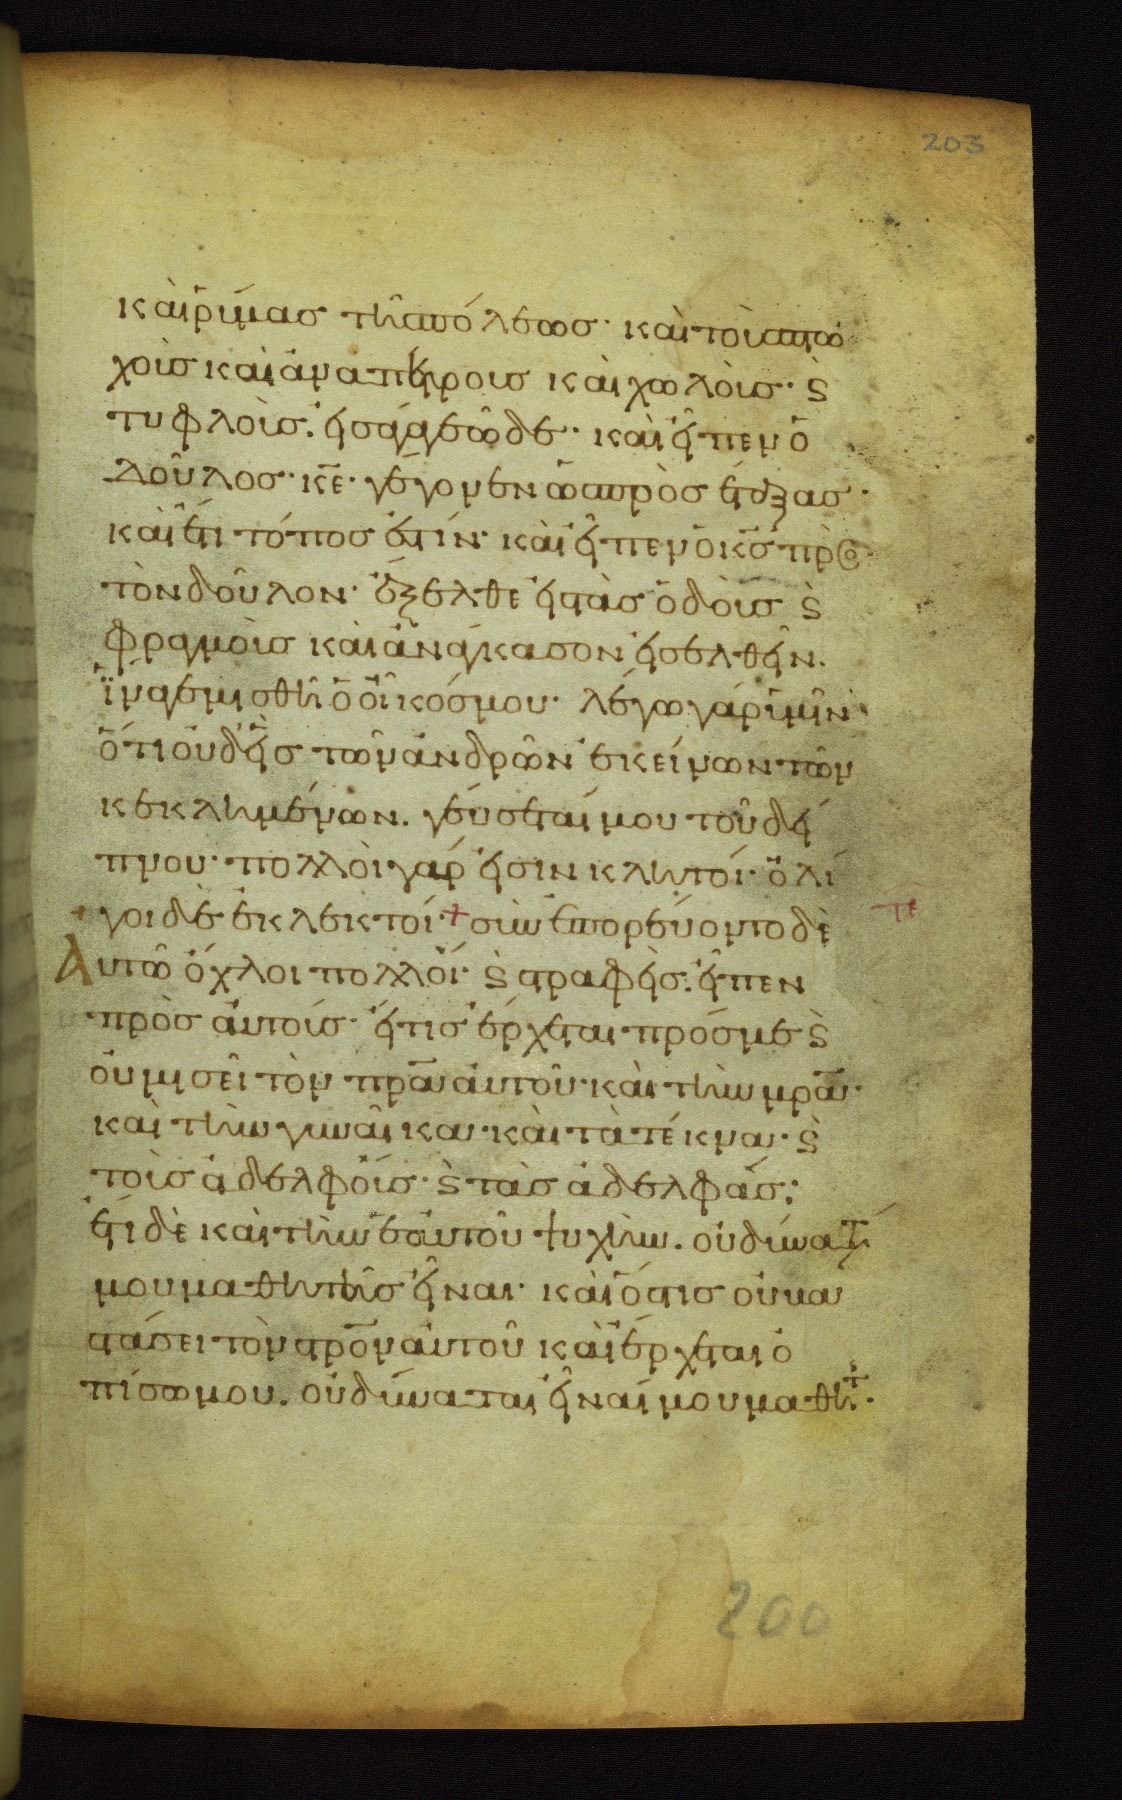 203
καὶ ῥύμας τῆς πόλεως· καὶ τοὺς πτω
χοὺς καὶ ἀναπήρους καὶ χωλοὺς· ϗ
τυφλοὺς. εἰσάγαγε ὧδε· καὶ εἶπεν ὁ
δοῦλος· κε̄· γέγονεν ὡς προσέταξας·
καὶ ἔτι τόπος ἐστίν· καὶ εἶπεν ὁ κς̄ πρὸς
τὸν δοῦλον· ἔξελθε εἰς τὰς ὁδοὺς ϗ
φραγμοὺς καὶ ἀνάγκασον εἰσελθεῖν.
ἵνα γεμισθῆ ὁ οἶκός μου· λέγω γὰρ ὑμῖν·
ὅτι οὐδεὶς τῶν ἀνδρῶν ἐκείνων τῶν
κεκλημένων. γεύσεταί μου τοῦ δεί
πνου· πολλοὶ γάρ εἰσιν κλητοί· ὀλί
γοι δὲ ἐκλεκτοί· + συνεπορεύοντο δὲ τε
Αυτῶ ὄχλοι πολλοί· ϗ στραφεὶς. εἶπεν
πρὸς αὐτούς· εἴ τις ἔρχεται πρός με ϗ
οὐ μισεῖ τὸν πρ̄α αὐτοῦ· καὶ τὴν μρ̄α·
καὶ τὴν γυναῖκα· καὶ τὰ τέκνα· ϗ
τοὺς ἀδελφούς· ϗ τὰς ἀδελφάς;
ἔτι δὲ καὶ τὴν ἑαυτοῦ ψυχήν. οὐ δύνατ
μου μαθητὴς εἶναι· καὶ ὅστις οὐ βα
στάσει τὸν στρ̄ον αὐτοῦ καὶ ἔρχεται ὀ
πίσω μου. οὐ δύναται εἶναί μου μαθητ·
200